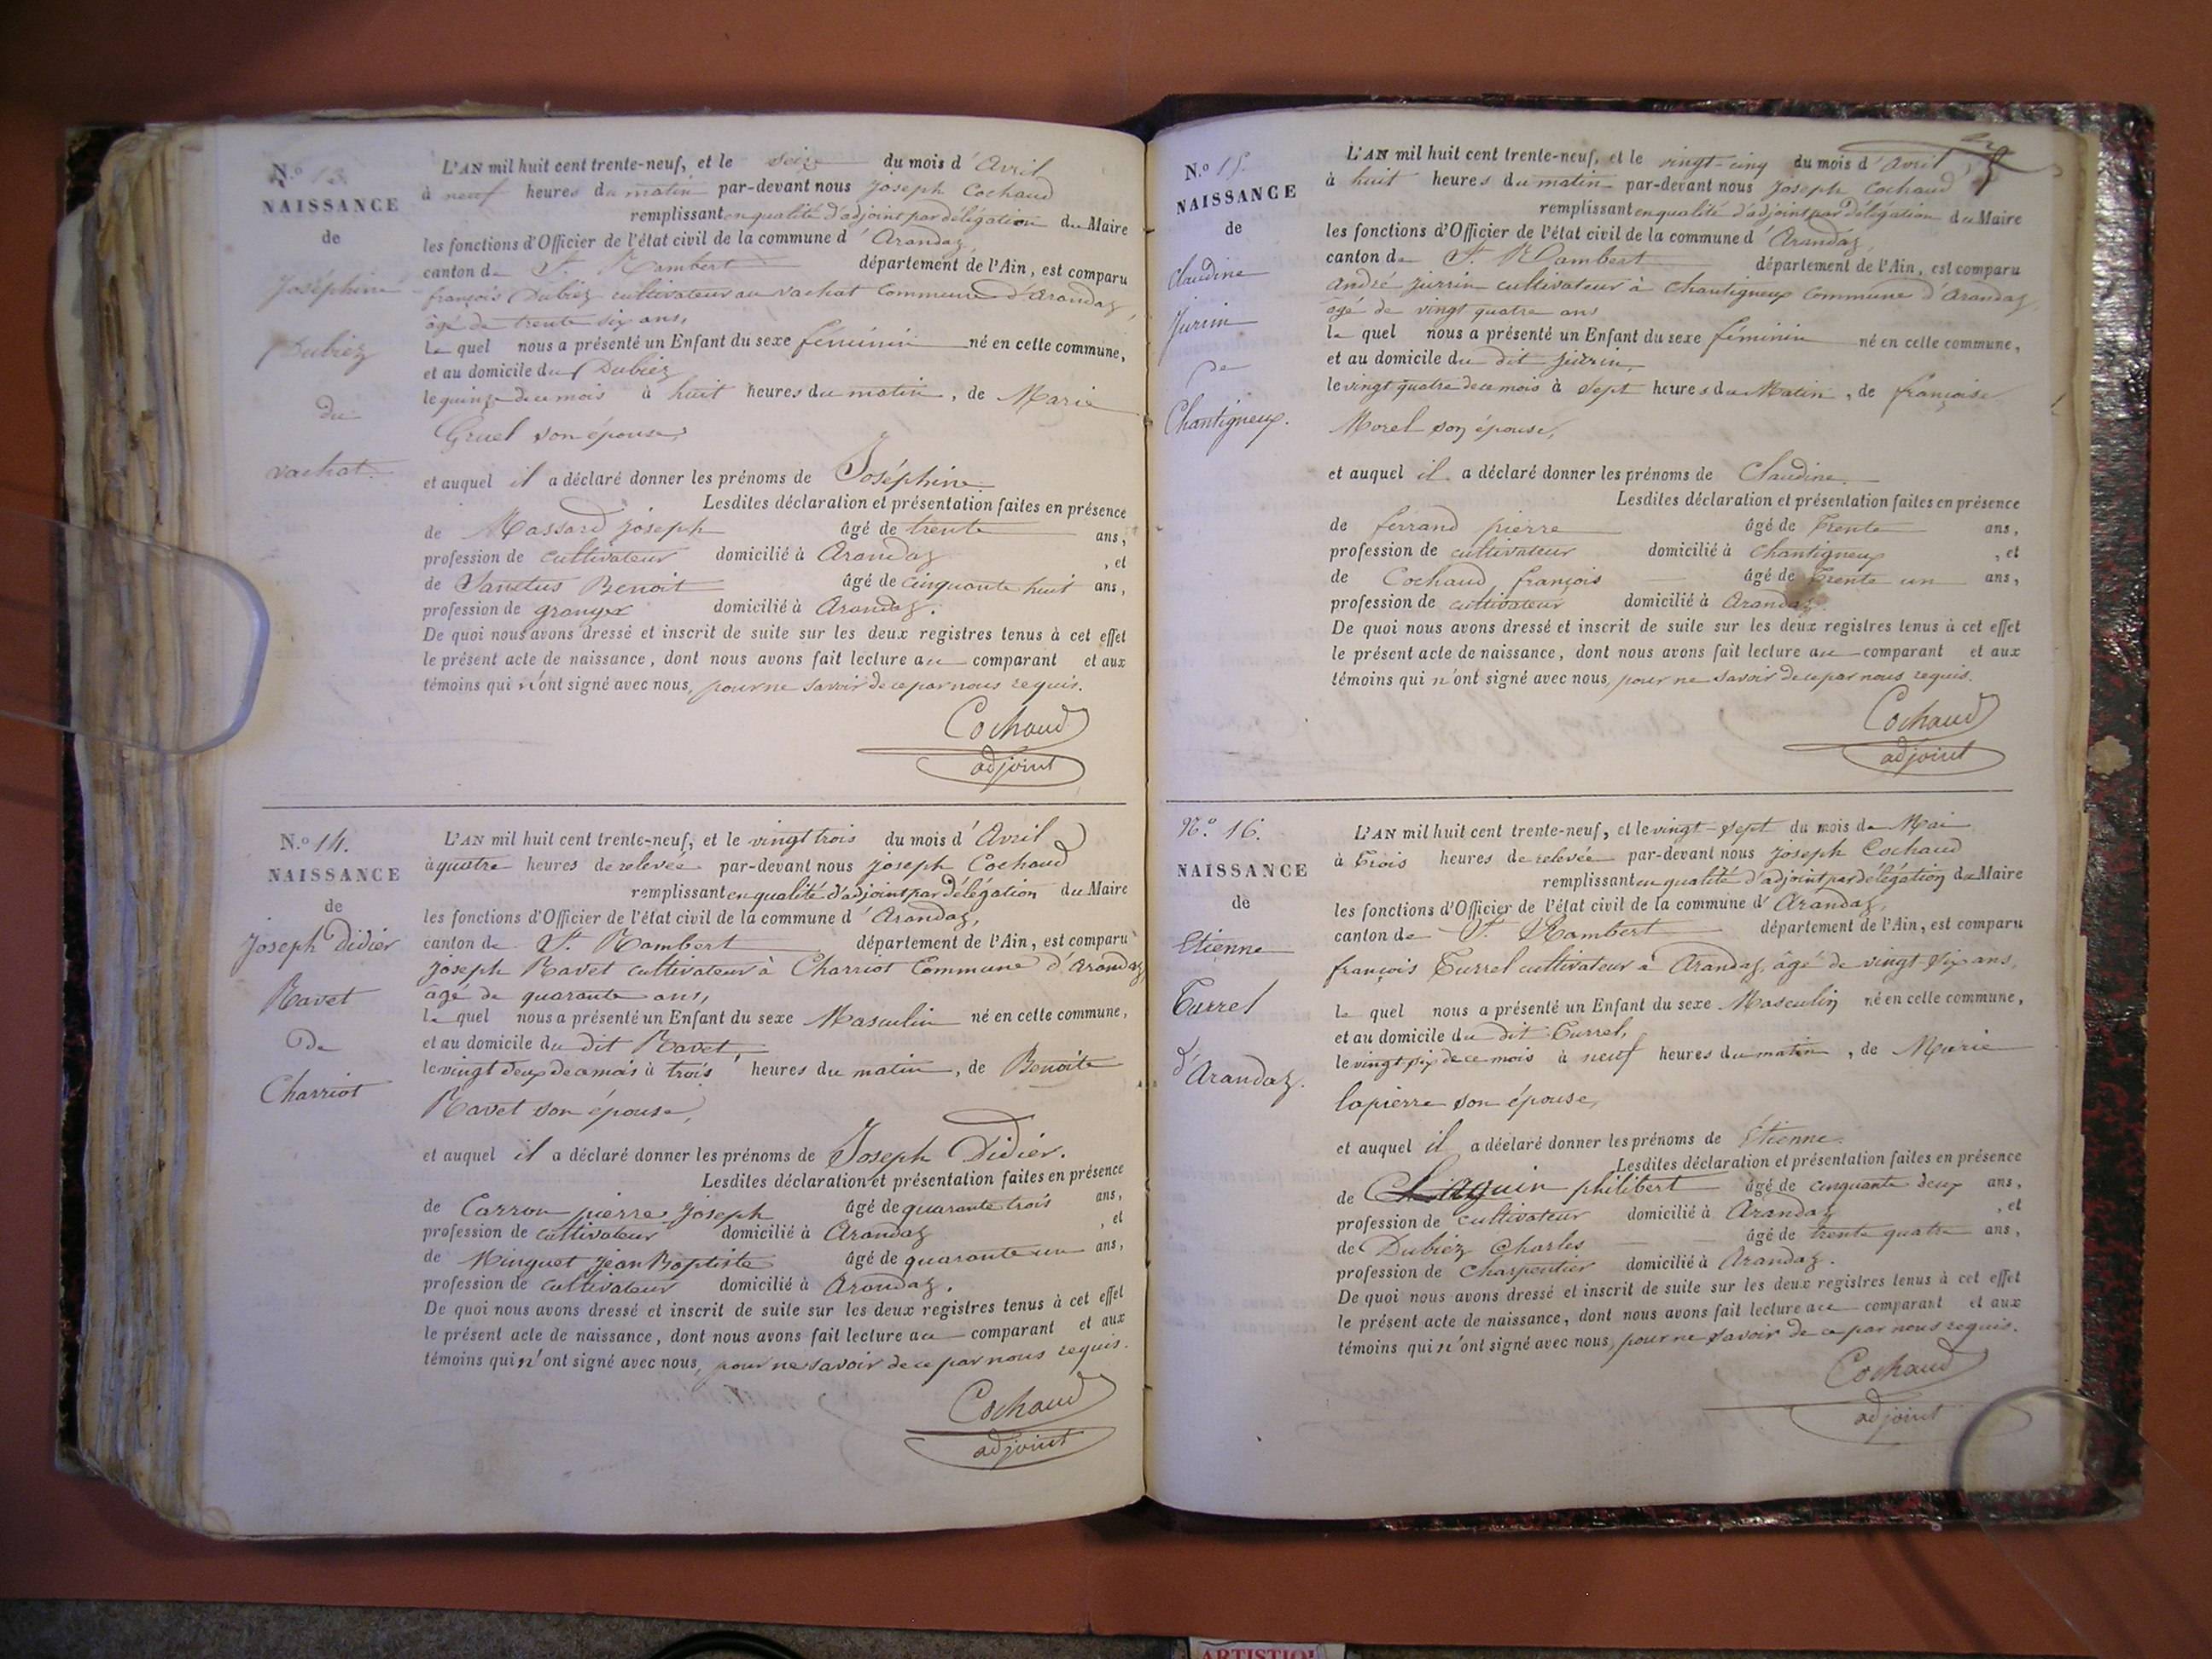 N.o 13.
NAISSANCE
de
Joséphine
Dubiez
du
vachat.
L'AN mil huit cent trente-neuf, et le seize du mois d'Avril
à neuf heures du matin par-devant nous joseph Cochaud
remplissant en qualité d'adjoint par délégation du Maire
les fonctions d'Officier de l'état civil de la commune d'Arandaz,
canton de St. Rambert département de l'Ain, est comparu
françois Dubiez cultivateur au vachat Commune d'Arandaz,
âgé de trente six ans,
Le quel nous a présenté un Enfant du sexe féminin né en cette commune,
et au domicile du Dubiez
le quinze de ce mois à huit heures du matin, de Marie
Gruel son épouse,
et auquel il a déclaré donner les prénoms de Joséphine
Lesdites déclaration et présentation faites en présence
de Massard joseph âgé de trente ans,
profession de cultivateur domicilié à Arandaz, et
de Sanctus Benoit âgé de cinquante huit ans,
profession de granger domicilié à Arandaz.
De quoi nous avons dressé et inscrit de suite sur les deux registres tenus à cet effet
le présent acte de naissance, dont nous avons fait lecture au comparant et aux
témoins qui n'ont signé avec nous, pour ne savoir de ce par nous requis.
Cochaud
adjoint
N.o 14.
NAISSANCE
de
Joseph Didier
Ravet
De
Charriot
L'AN mil huit cent trente-neuf, et le vingt trois du mois d'Avril
à quatre heures de relevée par-devant nous joseph Cochaud
remplissant en qualité d'adjoint par délégation du Maire
les fonctions d'Officier de l'état civil de la commune d'Arandaz,
canton de St. Rambert département de l'Ain, est comparu
joseph Ravet cultivateur à Charriot Commune d'Arandaz
âgé de quarante ans,
Le quel nous a présenté un Enfant du sexe Masculin né en cette commune,
et au domicile du dit Ravet,
le vingt deux de ce mois à trois heures du matin, de Benoite
Ravet son épouse,
et auquel il a déclaré donner les prénoms de Joseph Didier.
Lesdites déclaration et présentation faites en présence
de Carron pierre joseph âgé de quarante trois ans,
profession de cultivateur domicilié à Arandaz, et
de Minguet Jean Baptiste âgé de quarante un ans,
profession de cultivateur domicilié à Arandaz.
De quoi nous avons dressé et inscrit de suite sur les deux registres tenus à cet effet
le présent acte de naissance, dont nous avons fait lecture au comparant et aux
témoins qui n'ont signé avec nous, pour ne savoir de ce par nous requis.
Cochaud
adjoint
N.o 15.
NAISSANCE
de
Claudine
Jurrin
de
Chantigneux.
L'AN mil huit cent trente-neuf, et le vingt-cinq du mois d'Avril
à huit heures du matin par-devant nous joseph Cochaud
remplissant en qualité d'adjoint par délégation du Maire
les fonctions d'Officier de l'état civil de la commune d'Arandaz,
canton de St. Rambert département de l'Ain, est comparu
andré jurrin cultivateur à Chantigneux Commune d'Arandaz
âgé de vingt quatre ans
le quel nous a présenté un Enfant du sexe féminin né en cette commune,
et au domicile du dit jurrin,
le vingt quatre de ce mois à sept heures du Matin, de françoise
Morel son épouse,
et auquel il a déclaré donner les prénoms de Claudine.
Lesdites déclaration et présentation faites en présence
de ferrand pierre âgé de trente ans,
profession de cultivateur domicilié à Chantigneux, et
de Cochaud françois âgé de trente un ans,
profession de cultivateur domicilié à Arandaz.
De quoi nous avons dressé et inscrit de suite sur les deux registres tenus à cet effet
le présent acte de naissance, dont nous avons fait lecture au comparant et aux
témoins qui n'ont signé avec nous, pour ne savoir de ce par nous requis.
Cochaud
adjoint
N.o 16.
NAISSANCE
de
Etienne
Turrel
d'Arandaz.
L'AN mil huit cent trente-neuf, et le vingt-sept du mois de Mai
à trois heures de relevée par-devant nous joseph Cochaud
remplissant en qualité d'adjoint par délégation du Maire
les fonctions d'Officier de l'état civil de la commune d'Arandaz,
canton de St. Rambert département de l'Ain, est comparu
françois Turrel cultivateur à Arandaz, âgé de vingt six ans,
le quel nous a présenté un Enfant du sexe Masculin né en cette commune,
et au domicile du dit Turrel,
le vingt six de ce mois à neuf heures du matin, de Marie
lapierre son épouse,
et auquel il a déclaré donner les prénoms de Étienne.
Lesdites déclaration et présentation faites en présence
de philibert âgé de cinquante deux ans,
profession de cultivateur domicilié à Arandaz, et
de Dubiez Charles âgé de trente quatre ans,
profession de Charpentier domicilié à Arandaz.
De quoi nous avons dressé et inscrit de suite sur les deux registres tenus à cet effet
le présent acte de naissance, dont nous avons fait lecture au comparant et aux
témoins qui n'ont signé avec nous, pour ne savoir de ce par nous requis.
Cochaud
adjoint